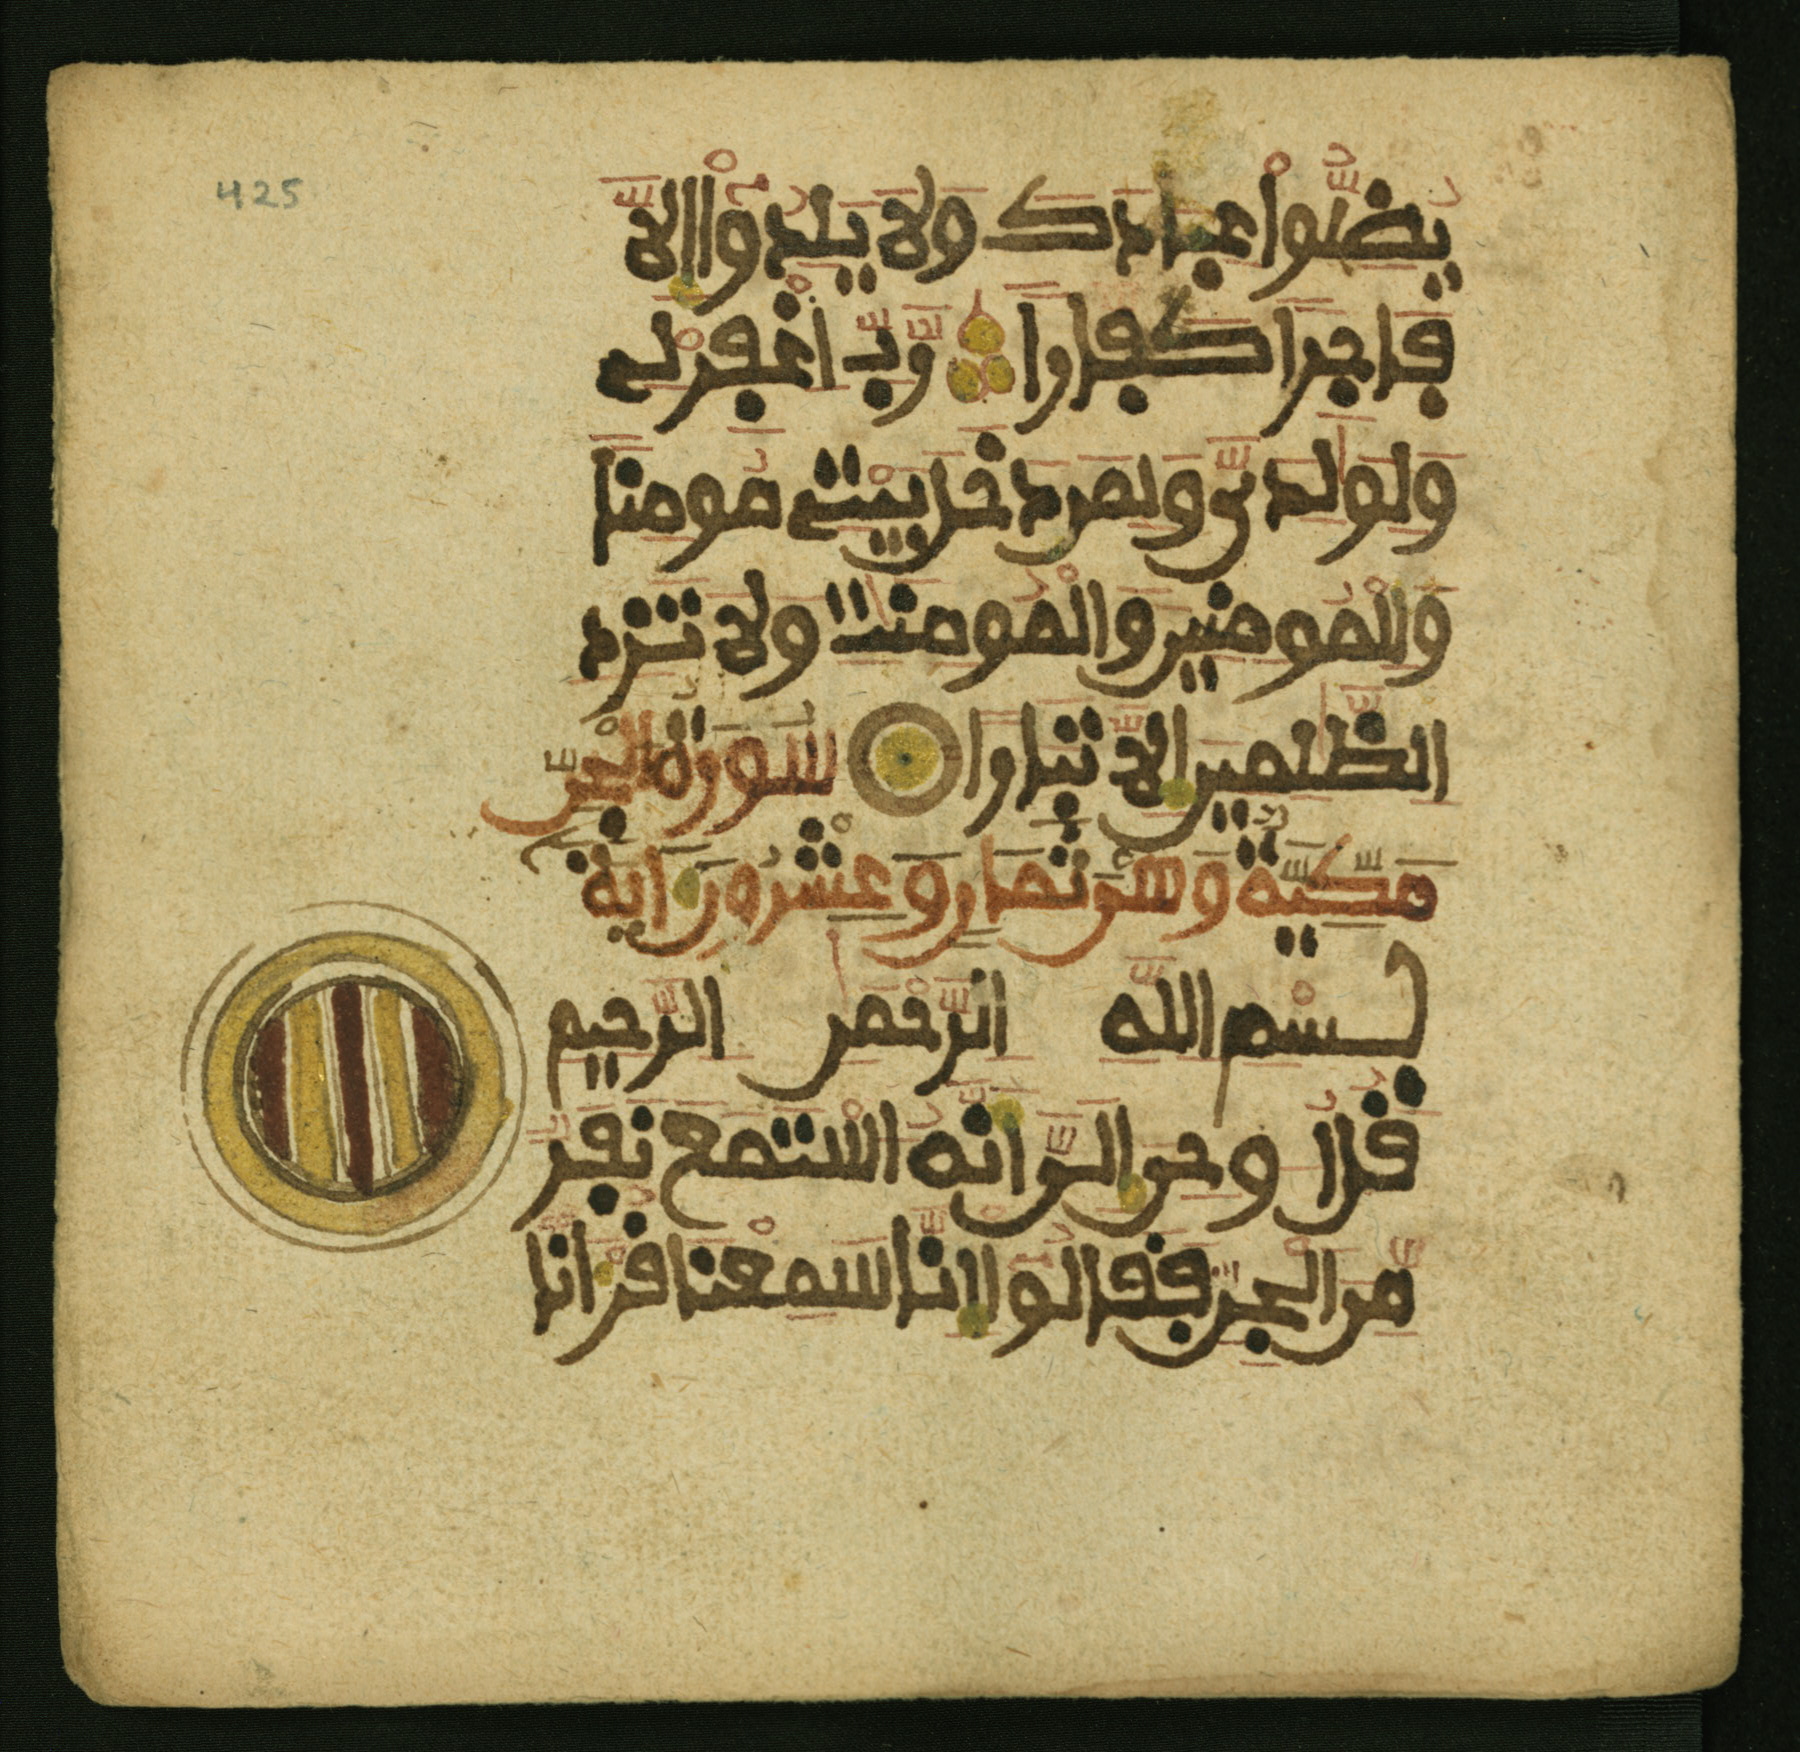 425
يضلوا عبادك ولا يلدوا الا
فاجرا كفارا رب اغفر لے
ولولدى ولمن دخل بيتى مومنا
وللمومنين والمومنت ولا تزد
الظلمين الا تبارا سورة الجن
مكية وهى ثمان وعشرون اية
بسم الله الرحمن الرحيم
قل اوحى الى انه استمع نفر
من الجن فقالوا انا سمعنا قرانا